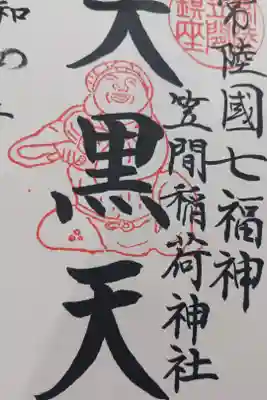 常陸國七福神
笠間稲荷神社
大黒天
和の